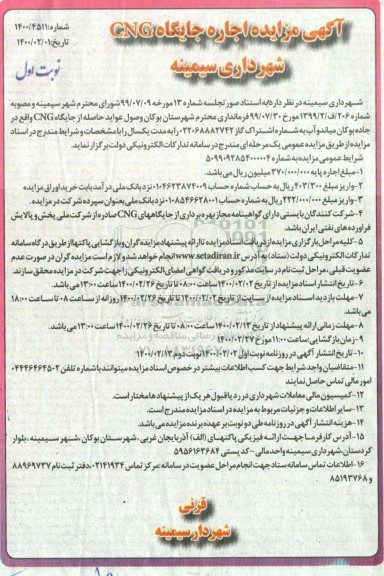 شماره:۱۴۰۰/۴۵۱۱
تاریخ:۱۴۰۰/۰۲/۰۱
نوبت اول
آگهی مزایده اجاره جایگاه CNG
شهرداری سیمینه
شهرداری سیمینه در نظر دارد به استناد صورتجلسه شماره ۱۳ مورخه ۹۹/۰۷/۰۹ شورای محترم شهر سیمینه و مصوبه
شماره ۲۰۶/ف/۱۳۹۹/۲ مورخ ۹۹/۰۷/۳۰ فرمانداری محترم شهرستان بوکان وصول عواید حاصله از جایگاه CNG واقع در
جاده بوکان میاندوآب به شماره اشتراک گاز ۲۲۰۶۸۸۸۲۷۴۲ را به مدت یکسال با مشخصات و شرایط مندرج در اسناد
مزایده از طریق مزایده عمومی یک مرحله ای مندرج در سامانه تدارکات الکترونیکی دولت برگزار نماید.
شرایط عمومی مزایده به شماره ۵۰۹۹۰۹۲۸۵۴۰۰۰۰۰۴
۱-مبلغ اجاره پایه ۳۷/۰۰۰/۰۰۰ میلیون ریال می باشد.
۲-واریز مبلغ ۴۰۳/۳۰۰ ریال به حساب شماره حساب ۰۱۰۴۶۲۳۸۷۴۰۰۹ نزد بانک ملی در آمد بابت خرید اوراق مزایده
۳-واریز مبلغ ۲۲۲/۰۰۰/۰۰۰ ریال به شماره حساب ۰۱۰۸۵۴۶۶۲۸۰۰۱ نزد بانک ملی بعنوان سپرده شرکت در مزایده.
۴-شرکت کنندگان بایستی دارای گواهینامه مجاز بهره برداری از جایگاههای CNG صادره از شرکت ملی پخش و پالایش
فراورده های نفتی ایران باشد.
۵-کلیه مراحل برگزاری مزایده از دریافت اسناد مزایده تا ارائه پیشنهاد مزایده گران و بازگشایی پاکتها از طریق درگاه سامانه
تدارکات الکترونیکی دولت (ستاد) به آدرس www.setadiran.ir انجام خواهد شد و لازم است مزایده گران در صورت عدم
عضویت قبلی، مراحل ثبت نام در سایت مذکور و دریافت گواهی امضای الکترونیکی را جهت شرکت در مزایده محقق سازند.
۶-تاریخ انتشار اسناد مزایده از تاریخ ۱۴۰۰/۰۲/۰۲ ساعت ۰۸:۰۰ تا تاریخ ۱۴۰۰/۰۲/۲۶ ساعت ۱۳:۰۰ می باشد.
۷-مهلت بازدید اسناد مزایده از سایت از تاریخ ۱۴۰۰/۰۲/۰۲ تا تاریخ ۱۴۰۰/۰۲/۲۶ روزانه از ساعت ۰۸ تا ساعت ۱۸:۰۰
می باشد.
۸-مهلت زمانی ارائه پیشنهاد از تاریخ ۱۴۰۰/۰۲/۱۳ ساعت ۰۸:۰۰ تا تاریخ ۱۴۰۰/۰۲/۲۶ ساعت ۱۳:۰۰ می باشد.
۹-زمان بازگشایی: ساعت ۱۱:۰۰ مورخ ۱۴۰۰/۰۲/۲۷
۱۰-تاریخ انتشار آگهی در روزنامه نوبت اول ۱۴۰۰/۰۲/۰۲ نوبت دوم ۱۴۰۰/۰۲/۱۳
۱۱-متقاضیان واجد شرایط جهت کسب اطلاعات بیشتر در خصوص اسناد مزایده میتوانند با شماره تلفن ۰۴۴۴۶۴۶۴۵۰۲
امور مالی تماس حاصل نمایند
۱۲-کمیسیون مالی معاملات شهرداری در رد یا قبول هر یک از پیشنهادها مختار است.
۱۳-سایر اطلاعات و جزئیات مربوط به مزایده در اسناد مزایده مندرج است.
۱۴-هزینه انتشار آگهی در روزنامه طی دو نوبت بر عهده برنده مزایده می باشد.
۱۵-آدرس کارفرما جهت ارائه فیزیکی پاکتهای (الف) آذربایجان غربی، شهرستان بوکان، شهر سیمینه، بلوار
کردستان، شهرداری سیمینه واحد مالی - کد پستی ۵۹۵۶۱۶۳۶۸۴
۱۶-اطلاعات تماس سامانه ستاد جهت انجام مراحل عضویت در سامانه: مرکز تماس ۰۲۱۴۱۹۳۴ دفتر ثبت نام ۸۸۹۶۹۷۳۷
و ۸۵۱۹۳۷۶۸
قرنی
شهردار سیمینه